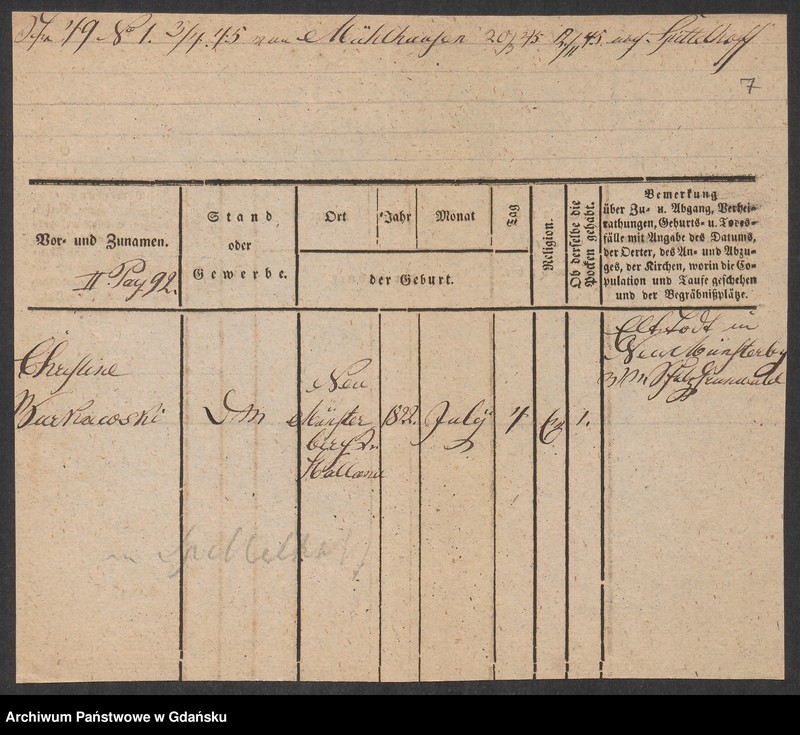 49 No 1. 3/4. 45 von Mühlhausen 20/3 45 45 nach Spittelhoff
7
Vor- und Zunamen.
II Pag 92.
Stand
oder
Gewerbe.
Ort
Jahr
Monat
Tag
der Geburt.
Religion.
Ob derselbe die
Pocken gehabt.
Bemerkung
über Zu- u. Abgang, Verhei-
rathungen, Geburts- u. Todes-
fälle mit Angabe des Datums,
der Oerter, des An- und Abzu-
ges, der Kirchen, worin die Co-
pulation und Taufe geschehen
und der Begräbnißplätze.
Christine
Burkaowski
DM
Neu
Münster
berg
Holland
1822.
July
4
Ev
1.
todt in
Neu Münsterbg
in Spittelhoff
Archiwum Państwowe w Gdańsku